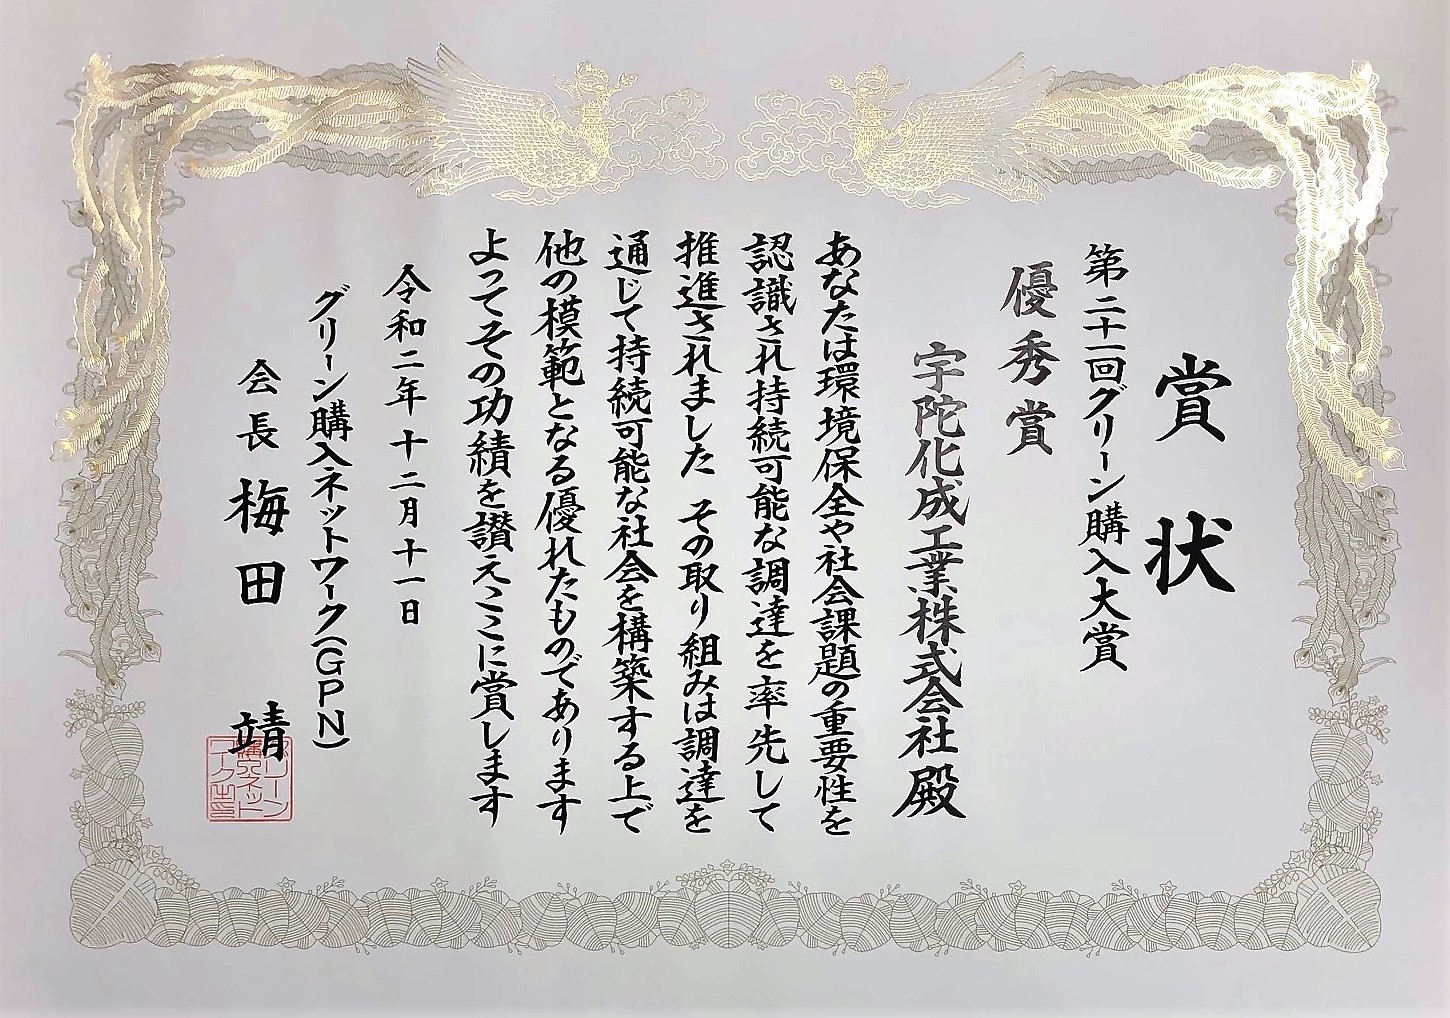 賞状
第二十一回グリーン購入大賞
優秀賞
宇陀化成工業株式会社殿
あなたは環境保全や社会課題の重要性を
認識され持続可能な調達を率先して
推進されました その取り組みは調達を
通じて持続可能な社会を構築する上で
他の模範となる優れたものであります
よってその功績を讃えここに賞します
令和二年十二月十一日
グリーン購入ネットワーク(GPN)
会長 梅田 靖
グリーン
購入ネット
ワーク之印